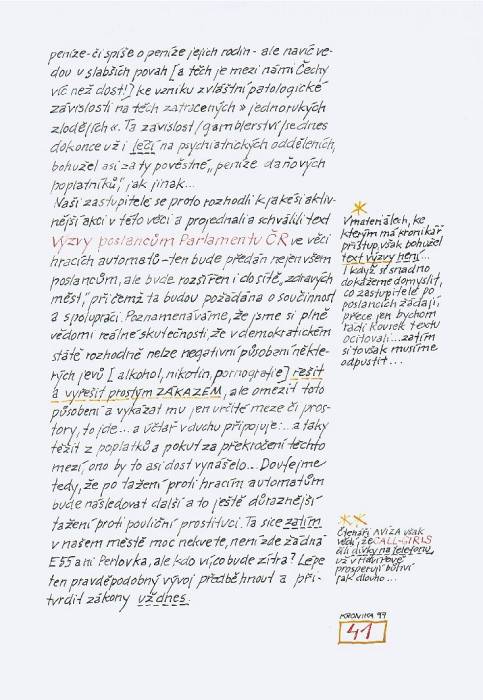 peníze - či spíše o peníze jejich rodin - ale navíc ve-
dou u slabších povah [a těch je mezi námi Čechy
víc než dost!] ke vzniku zvláštní patologické
závislosti na těch zatracených » jednorukých
zlodějích «. Ta závislost /gamblerství/ se dnes
dokonce už i léčí na psychiatrických odděleních,
bohužel asi za ty pověstné „peníze daňových
poplatníků", jak jinak...
Naši zastupitelé se proto rozhodli k jakési aktiv-
nější akci v této věci a projednali a schválili text
Výzvy poslancům Parlamentu ČR ve věci
hracích automatů - ten bude předán nejen všem
poslancům, ale bude rozšířen i do sítě „zdravých
měst", při čemž ta budou požádána o součinnost
a spolupráci. Poznamenáváme, že jsme si plně
vědomi reálné skutečnosti, že v demokratickém
státě rozhodně nelze negativní působení někte-
rých jevů [alkohol, nikotin, pornografie] řešit
a vyřešit prostým ZÁKAZEM, ale omezit toto
působení a vykázat mu jen určité meze či pros-
tory, to jde... a účtař v duchu připojuje:... a taky
těžit z poplatků a pokut za překročení těchto
mezí, ono by to asi dost vynášelo... Doufejme
tedy, že po tažení proti hracím automatům
bude následovat další a to ještě důraznější
tažení proti pouliční prostituci. Ta sice zatím
v našem městě moc nekvete, není zde žádná
E55 ani Perlovka, ale kdo ví, co bude zítra? Lépe
ten pravděpodobný vývoj předběhnout a při-
tvrdit zákony už dnes.
*
V materiálech, ke
kterým má kronikář
přístup, však bohužel
text výzvy není...
I když si snadno
dokážeme domyslit,
co zastupitelé po
poslancích žádají,
přece jen bychom
rádi kousek textu
ocitovali... zatím
si to však musíme
odpustit...
**
Čtenáři AVÍZA však
vědí, že CALL-GIRLS
čili dívky na telefonu
už v
prosperují
jak dlouho...
KRONIKA 99
41